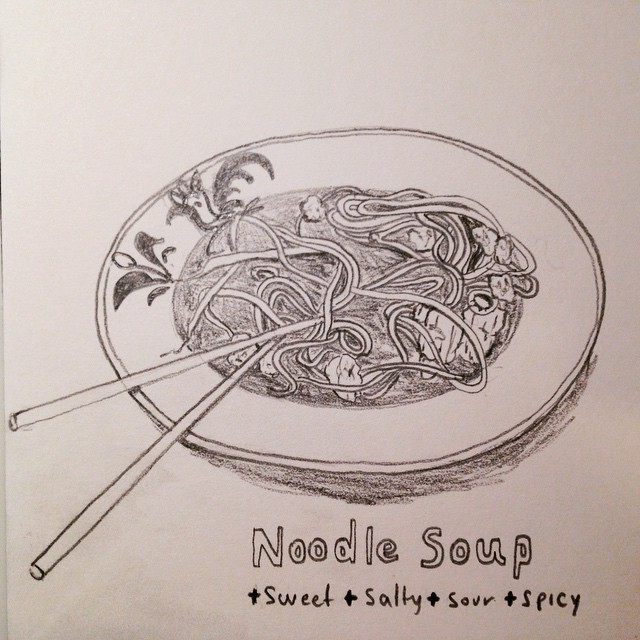 Noodle Soup
+Sweet +Salty+Sour +Spicy